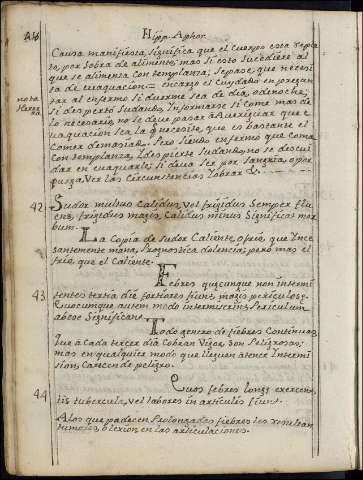 Hipp. Aphor.
Causa manifiesta, Significa que el cuerpo esta reple
to, por Sobra de alimento; mas si esto Succediere al
que se alimenta Con templanza; Sepase que necesi
ta de euaquacion = encargo el Cuydado en pregun
tar al enfermo si duerme sea de dia, o de noche;
nota
Si despierto Sudando, Ynformarse si Come mas de
lo necesario, no se deve pasar à
euaquacion sea la q necesite, que es bastante el
Comer demasiado. Pero siendo enfermo que coma
Con templanza, y despierte Sudando, no se descui
dar en euaquarle; si deva Ser por Sangria, o per
purga, Ver las Circunstancias y obrar &.
42 Sudor multus Calidus, Vel frigidus Semper flu
ens, frigidus magis, Calidus minus Significat mor
bum.
La Copia de Sudor Caliente, o frio, que Ynce
santemente mana, Prognostica dolencia; pero mas el
frio, que el Caliente.
Febres quæcunque non intermi
43 tentes tertia die fortiores fiunt, magis periculosæ.
Quocumque autem modo intermiserint, Periculum
abesse Significant.
Todo genero de fiebres Continuas,
que à Cada tercer dia Cobran Vigor, Son Peligrosas;
mas en qualquier modo que lleguen a tener Ynterm
ision, Carecen de peligro.
Quos febres longæ exercent,
44 iis tubercula, vel labores in articulis fiunt.
A los que padecen Prolongadas fiebres les resultan
tumores, o lexion en las articulaciones.